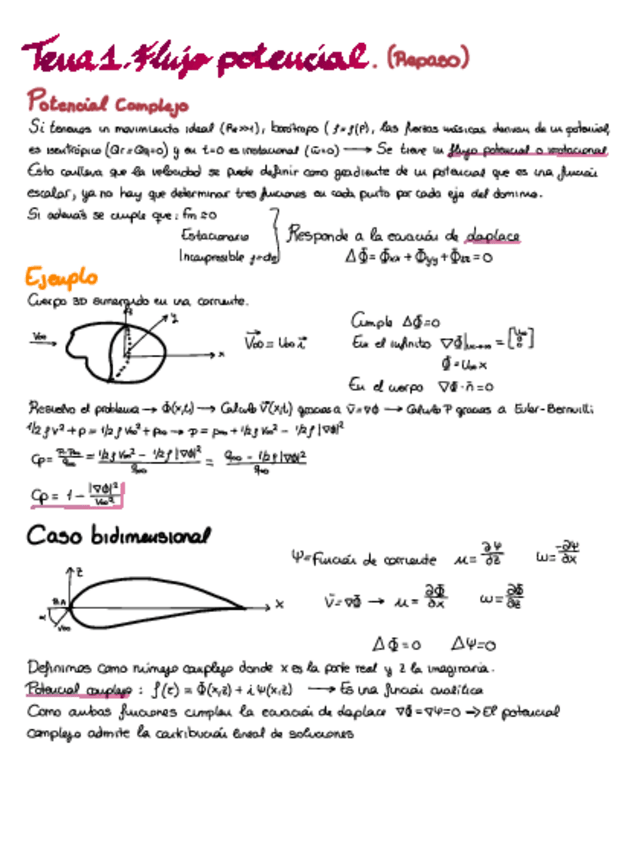 Tema 1. Flujo potencial. (Repaso)
Potencial Complejo
Si tenemos un movimiento ideal (Re>>1), barótropo (ρ=ρ(P), las fuerzas másicas derivan de un potencial,
es isentrópico (Qr=Qq=0) y en t=0 es irrotacional (ω̄=0) → Se tiene un flujo potencial o irrotacional.
Esto conlleva que la velocidad se puede definir como gradiente de un potencial que es una función
escalar, ya no hay que determinar tres funciones en cada punto por cada eje del dominio.
Si además se cumple que: fm≃0
Estacionario
Incompresible ρ=cte
Responde a la ecuación de Laplace
ΔΦ = Φxx + Φyy + Φzz = 0
Ejemplo
Cuerpo 3D sumergido en una corriente.
V∞
z
y
x
V⃗∞ = U∞ i⃗
Cumple ΔΦ=0
En el infinito ∇Φ|x→∞ = [U∞ 0 0]
Φ = U∞ x
En el cuerpo ∇Φ·n̄ = 0
Resuelvo el problema → Φ(x,t) → Calculo V⃗(x,t) gracias a v̄=∇Φ → Calculo P gracias a Euler-Bernoulli
1/2 ρ v² + p = 1/2 ρ V∞² + p∞ → p = p∞ + 1/2 ρ V∞² - 1/2 ρ |∇Φ|²
Cp = (p-p∞)/q∞ = (1/2 ρ V∞² - 1/2 ρ |∇Φ|²)/q∞ = (q∞ - 1/2 ρ |∇Φ|²)/q∞
Cp = 1 - |∇Φ|²/V∞²
Caso bidimensional
z
x
α
V∞
Ψ=Función de corriente u = ∂Ψ/∂z ω = -∂Ψ/∂x
v̄=∇Φ → u = ∂Φ/∂x ω = ∂Φ/∂z
ΔΦ=0 ΔΨ=0
Definimos como número complejo donde x es la parte real y z la imaginaria.
Potencial complejo: f(τ) = Φ(x,z) + i Ψ(x,z) → Es una función analítica
Como ambas funciones cumplen la ecuación de Laplace ∇Φ=∇Ψ=0 → El potencial
complejo admite la contribución lineal de soluciones